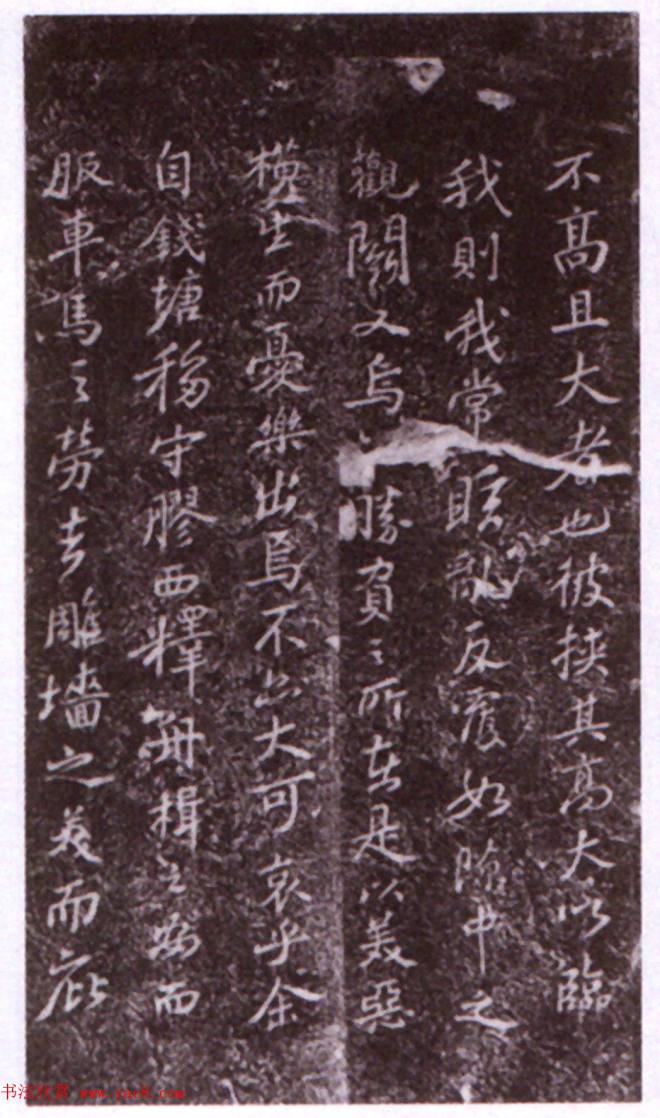 不高且大者也彼挾其高大以臨
我則我常眩亂反覆如隙中之
觀鬪又烏勝負之所在是以美惡
橫生而憂樂出焉不亦大可哀乎余
自錢塘移守膠西釋舟楫之安而
服車馬之勞去雕墻之美而庇
书法欣赏 www.yac8.com